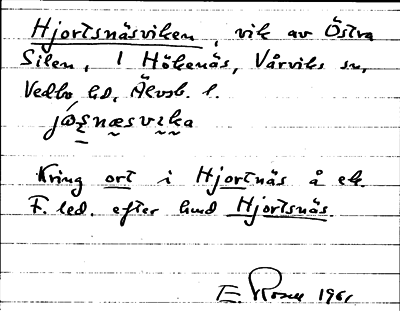 Hjortsnäsviken, vik av Östra
Silen, i Hökenäs, Vårviks sn,
Vedbo hd, Älvsb. l.
Kring ort i Hjortnäs å ek.
F. led. efter hmd Hjortsnäs.
E. Rosen 1961